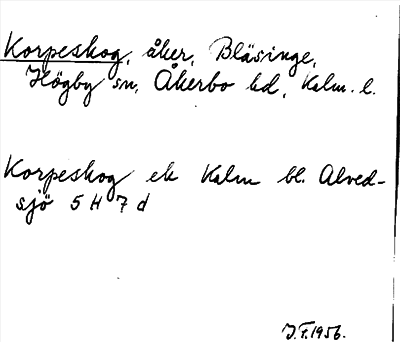 Korpeskog, åker, Bläsinge,
Högby sn, Åkerbo hd, Kalm. l.
Korpeskog ek Kalm bl. Alved-
sjö 5 H 7 d
J.F. 1956.